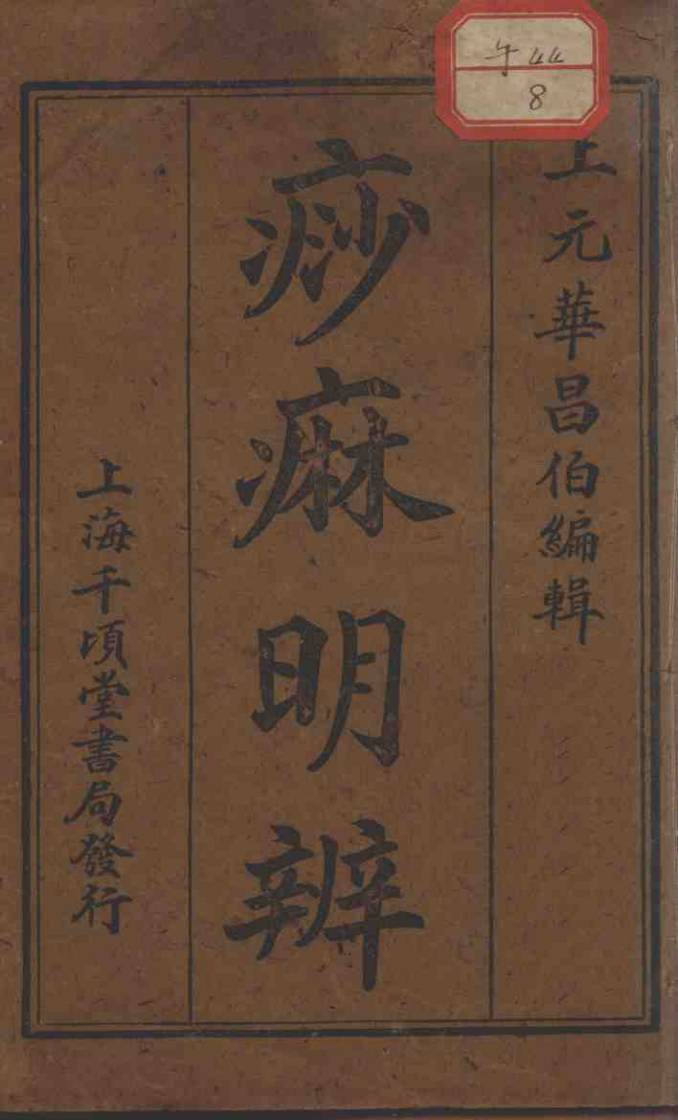 上元華昌伯編輯
痧痳明辨
上海千頃堂書局發行
44
8